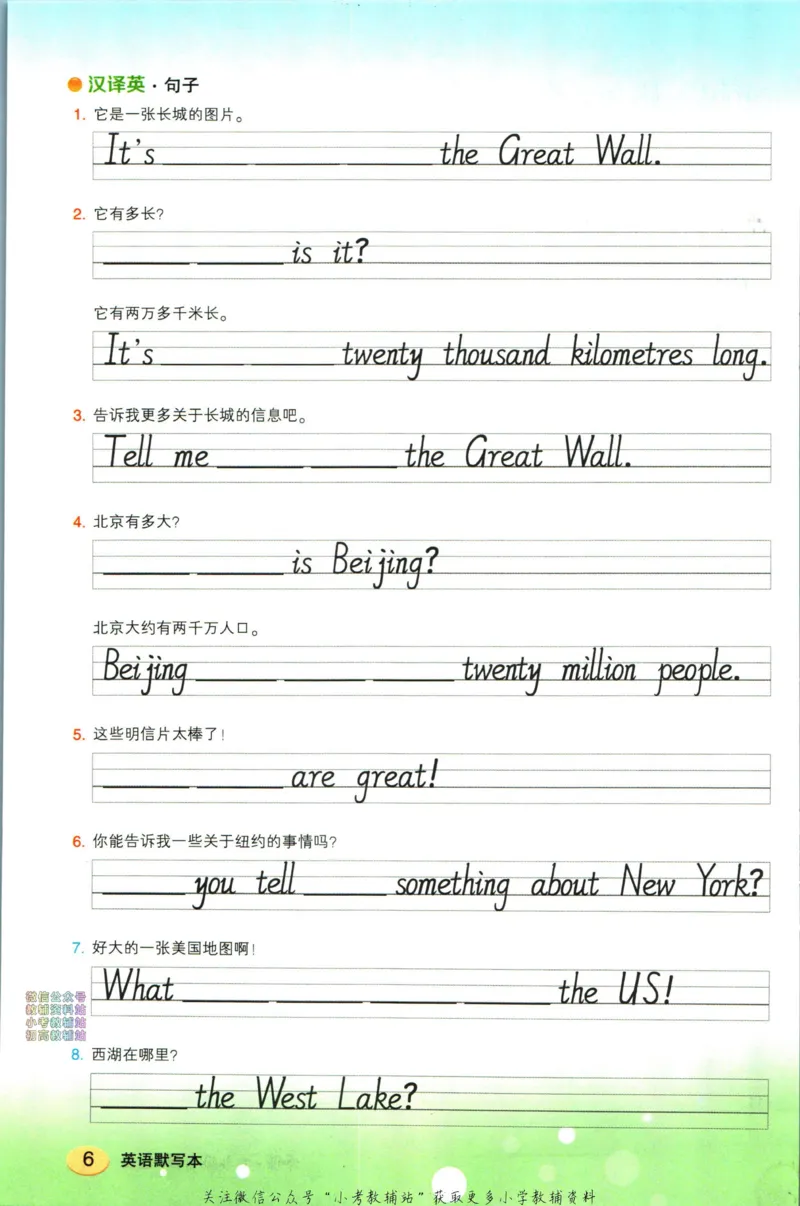 汉译英·句子
1. 它是一张长城的图片。
It's ____ ____ ____ the Great Wall.
2. 它有多长?
____ ____ is it?
它有两万多千米长。
It's ____ ____ twenty thousand kilometres long.
3. 告诉我更多关于长城的信息吧。
Tell me ____ ____ the Great Wall.
4. 北京有多大?
____ ____ is Beijing?
北京大约有两千万人口。
Beijing ____ ____ ____ twenty million people.
5. 这些明信片太棒了!
____ ____ are great!
6. 你能告诉我一些关于纽约的事情吗?
____ you tell ____ something about New York?
7. 好大的一张美国地图啊!
What ____ ____ ____ ____ the US!
微信公众号
教辅资料站
小考教辅站
初高教辅站
8. 西湖在哪里?
____ the West Lake?
6 英语默写本
关注微信公众号“小考教辅站”获取更多小学教辅资料